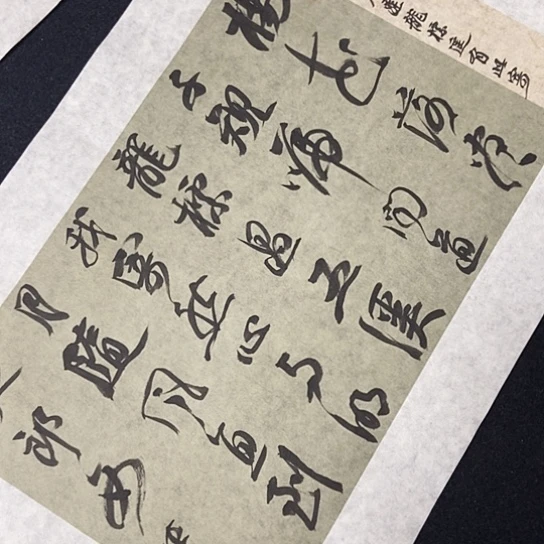 遷龍標遥有此寄
楊花落盡
子規啼聞道
龍標過五溪
我寄愁心与明
月隨風直到
郎西